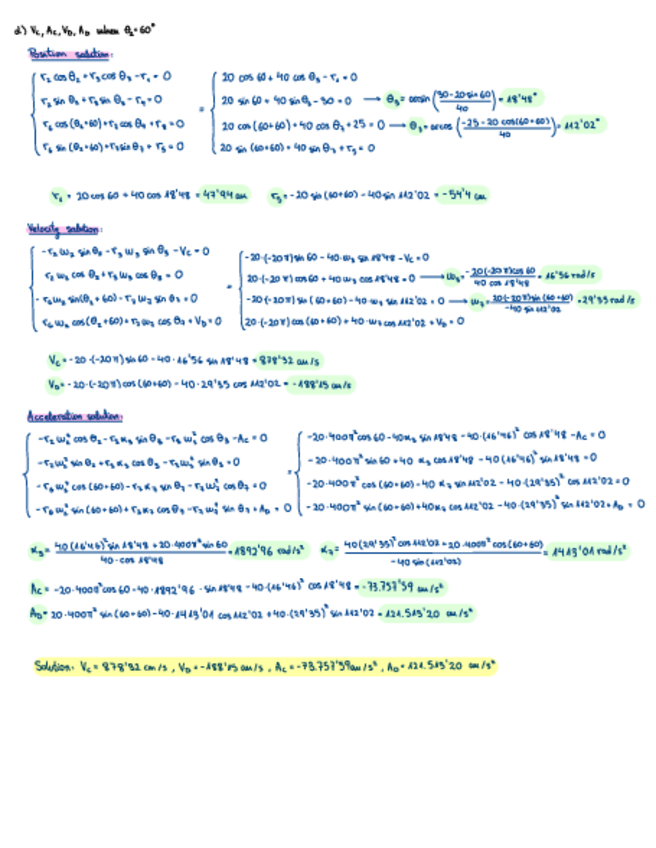 d) Vc, Ac, VD, AD when θ2=60°
Position solution:
r2 cos θ2 + r3 cos θ3 - r1 = 0
r2 sin θ2 + r3 sin θ3 - r4 = 0
r6 cos (θ2+60) + r7 cos θ7 + r8 = 0
r6 sin (θ2+60) + r7 sin θ7 + r5 = 0
= 20 cos 60 + 40 cos θ3 - r1 = 0
20 sin 60 + 40 sin θ3 - 30 = 0 → θ3 = arcsin ((30-20 sin 60)/40) = 18'48°
20 cos (60+60) + 40 cos θ7 + 25 = 0 → θ7 = arccos ((-25-20 cos(60+60))/40) = 112'02°
20 sin (60+60) + 40 sin θ7 + r5 = 0
r1 = 20 cos 60 + 40 cos 18'48 = 47'94 cm r5 = -20 sin (60+60) - 40 sin 112'02 = -54'4 cm
Velocity solution:
-r2 w2 sin θ2 - r3 w3 sin θ3 - Vc = 0
r2 w2 cos θ2 + r3 w3 cos θ3 = 0
-r6 w2 sin(θ2+60) - r7 w7 sin θ7 = 0
r6 w2 cos(θ2+60) + r7 w7 cos θ7 + VD = 0
= -20·(-20π) sin 60 - 40·w3 sin 18'48 - Vc = 0
20·(-20π) cos 60 + 40 w3 cos 18'48 = 0 → w3 = -20(-20π) cos 60 / 40 cos 18'48 = 16'56 rad/s
-20·(-20π) sin (60+60) - 40·w7 sin 112'02 = 0 → w7 = 20(-20π) sin (60+60) / -40 sin 112'02 = 29'35 rad/s
20·(-20π) cos (60+60) + 40·w7 cos 112'02 + VD = 0
Vc = -20·(-20π) sin 60 - 40·16'56 sin 18'48 = 878'32 cm/s
VD = -20·(-20π) cos (60+60) - 40·29'35 cos 112'02 = -188'15 cm/s
Acceleration solution:
-r2 w2² cos θ2 - r3 α3 sin θ3 - r3 w3² cos θ3 - Ac = 0
-r2 w2² sin θ2 + r3 α3 cos θ3 - r3 w3² sin θ3 = 0
-r6 w2² cos (60+60) - r7 α7 sin θ7 - r7 w7² cos θ7 = 0
-r6 w2² sin (60+60) + r7 α7 cos θ7 - r7 w7² sin θ7 + AD = 0
= -20·400π² cos 60 - 40α3 sin 18'48 - 40·(16'46)² cos 18'48 - Ac = 0
-20·400π² sin 60 + 40 α3 cos 18'48 - 40(16'46)² sin 18'48 = 0
-20·400π² cos (60+60) - 40 α7 sin 112'02 - 40·(29'35)² cos 112'02 = 0
-20·400π² sin (60+60) + 40α7 cos 112'02 - 40·(29'35)² sin 112'02 + AD = 0
α3 = 40(16'46)² sin 18'48 + 20·400π² sin 60 / 40·cos 18'48 = 1892'96 rad/s² α7 = 40(29'35)² cos 112'02 + 20·400π² cos(60+60) / -40 sin (112'02) = 1413'01 rad/s²
Ac = -20·400π² cos 60 - 40·1892'96 · sin 18'48 - 40·(16'46)² cos 18'48 = -73.757'59 cm/s²
AD = 20·400π² sin (60+60) - 40·1413'01 cos 112'02 + 40·(29'35)² sin 112'02 = 121.513'20 cm/s²
Solution: Vc = 878'32 cm/s, VD = -188'15 cm/s, Ac = -73.757'59 cm/s², AD = 121.513'20 cm/s²